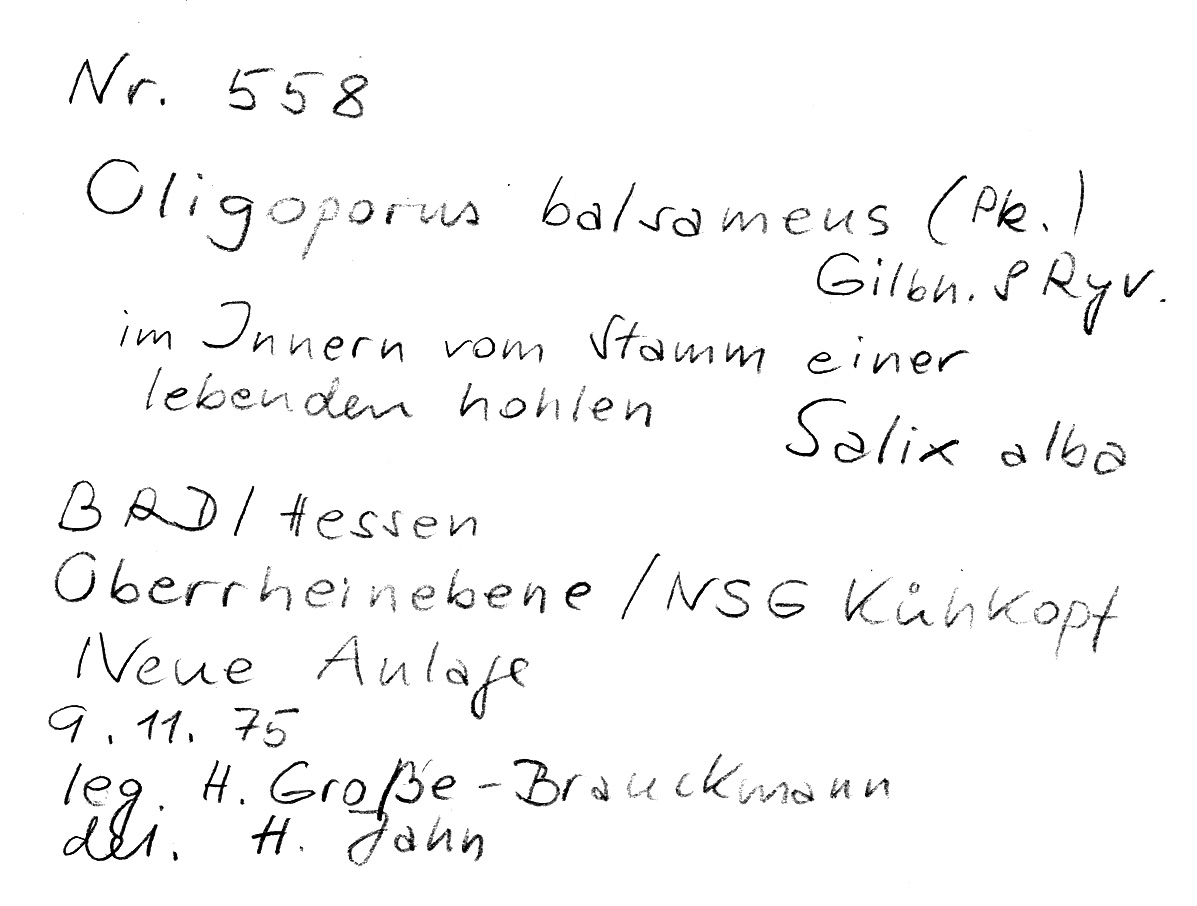 Nr. 558
Oligoporus balsameus (Pk.)
Gilbn. & Ryv.
im Innern vom Stamm einer
lebenden hohlen Salix alba
BRD/Hessen
Oberrheinebene /NSG Kühkopf
Neue Anlage
9.11.75
leg. H. Große-Brauckmann
det. H. Jahn